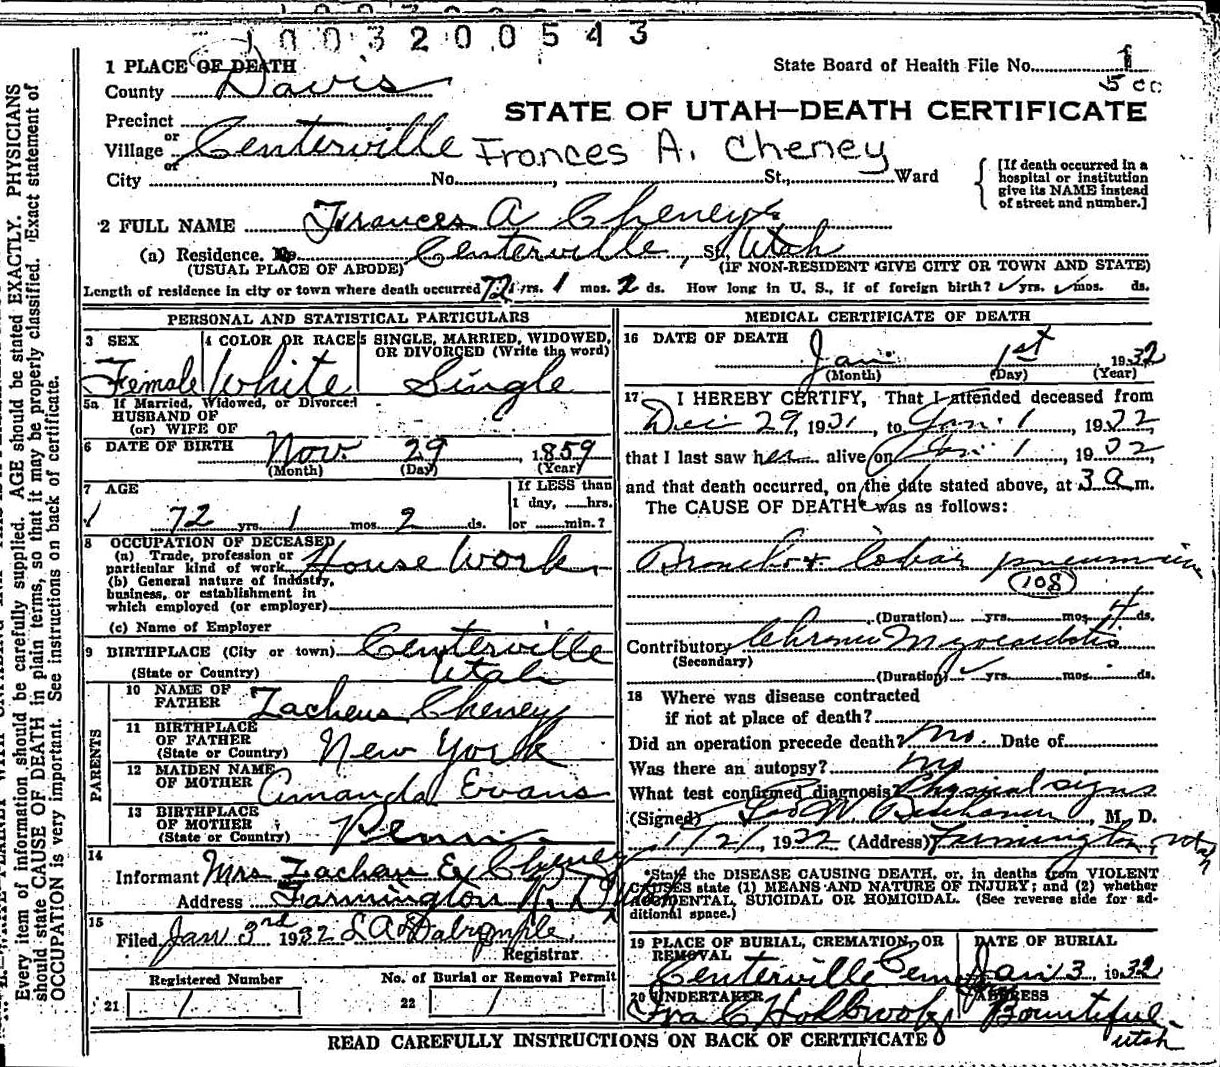 1003200543
1 PLACE OF DEATH
State Board of Health File No. 1
County Davis
5 cc
STATE OF UTAH—DEATH CERTIFICATE
Precinct
or
Village Centerville Frances A. Cheney
or
City No. , St., Ward
[If death occurred in a
hospital or institution
give its NAME instead
of street and number.]
2 FULL NAME Frances A Cheney
(a) Residence. No. Centerville, St. Utah
(USUAL PLACE OF ABODE) (IF NON-RESIDENT GIVE CITY OR TOWN AND STATE)
Length of residence in city or town where death occurred 72 yrs. 1 mos. 2 ds. How long in U. S., if of foreign birth? yrs. mos. ds.
PERSONAL AND STATISTICAL PARTICULARS
3 SEX 4 COLOR OR RACE 5 SINGLE, MARRIED, WIDOWED,
OR DIVORCED (Write the word)
Female White Single
5a If Married, Widowed, or Divorced
HUSBAND OF
(or) WIFE OF
6 DATE OF BIRTH Nov. 29, 1859
(Month) (Day) (Year)
7 AGE If LESS than
1 day, hrs.
72 yrs. 1 mos. 2 ds. or min.?
8 OCCUPATION OF DECEASED
(a) Trade, profession or
particular kind of work House Work
(b) General nature of industry,
business, or establishment in
which employed (or employer)
(c) Name of Employer
9 BIRTHPLACE (City or town) Centerville
(State or Country) Utah
PARENTS
10 NAME OF
FATHER Zacheus Cheney
11 BIRTHPLACE
OF FATHER
(State or Country) New York
12 MAIDEN NAME
OF MOTHER Amanda Evans
13 BIRTHPLACE
OF MOTHER
(State or Country) Penn
14
Informant Mrs. Zachau E. Cheney
Address Farmington R.D.
15
Filed Jan 3rd 1932 L A Dalrymple
Registrar
Registered Number No. of Burial or Removal Permit
21 1 22 1
MEDICAL CERTIFICATE OF DEATH
16 DATE OF DEATH
Jan. 1st 1932
(Month) (Day) (Year)
17 I HEREBY CERTIFY, That I attended deceased from
Dec 29, 1931, to Jan. 1, 1932,
that I last saw her alive on Jan 1, 1932,
and that death occurred, on the date stated above, at 3 a m.
The CAUSE OF DEATH* was as follows:
Broncho + lobar pneumonia
108
(Duration) yrs. mos. 4 ds.
Contributory Chronic Myocarditis
(Secondary)
(Duration) yrs. mos. ds.
18 Where was disease contracted
if not at place of death?
Did an operation precede death? No. Date of
Was there an autopsy? No
What test confirmed diagnosis? Physical signs
(Signed) M. D.
1/2/, 1932 (Address) Farmington, Utah
*State the DISEASE CAUSING DEATH, or, in deaths from VIOLENT
CAUSES state (1) MEANS AND NATURE OF INJURY; and (2) whether
ACCIDENTAL, SUICIDAL OR HOMICIDAL. (See reverse side for ad-
ditional space.)
19 PLACE OF BURIAL, CREMATION, OR
REMOVAL
DATE OF BURIAL
Centerville Cem Jan 3 1932
20 UNDERTAKER ADDRESS
Ira C Holbrook Bountiful
Utah
READ CAREFULLY INSTRUCTIONS ON BACK OF CERTIFICATE
Every item of information should be carefully supplied. AGE should be stated EXACTLY. PHYSICIANS
should state CAUSE OF DEATH in plain terms, so that it may be properly classified. Exact statement of
OCCUPATION is very important. See instructions on back of certificate.